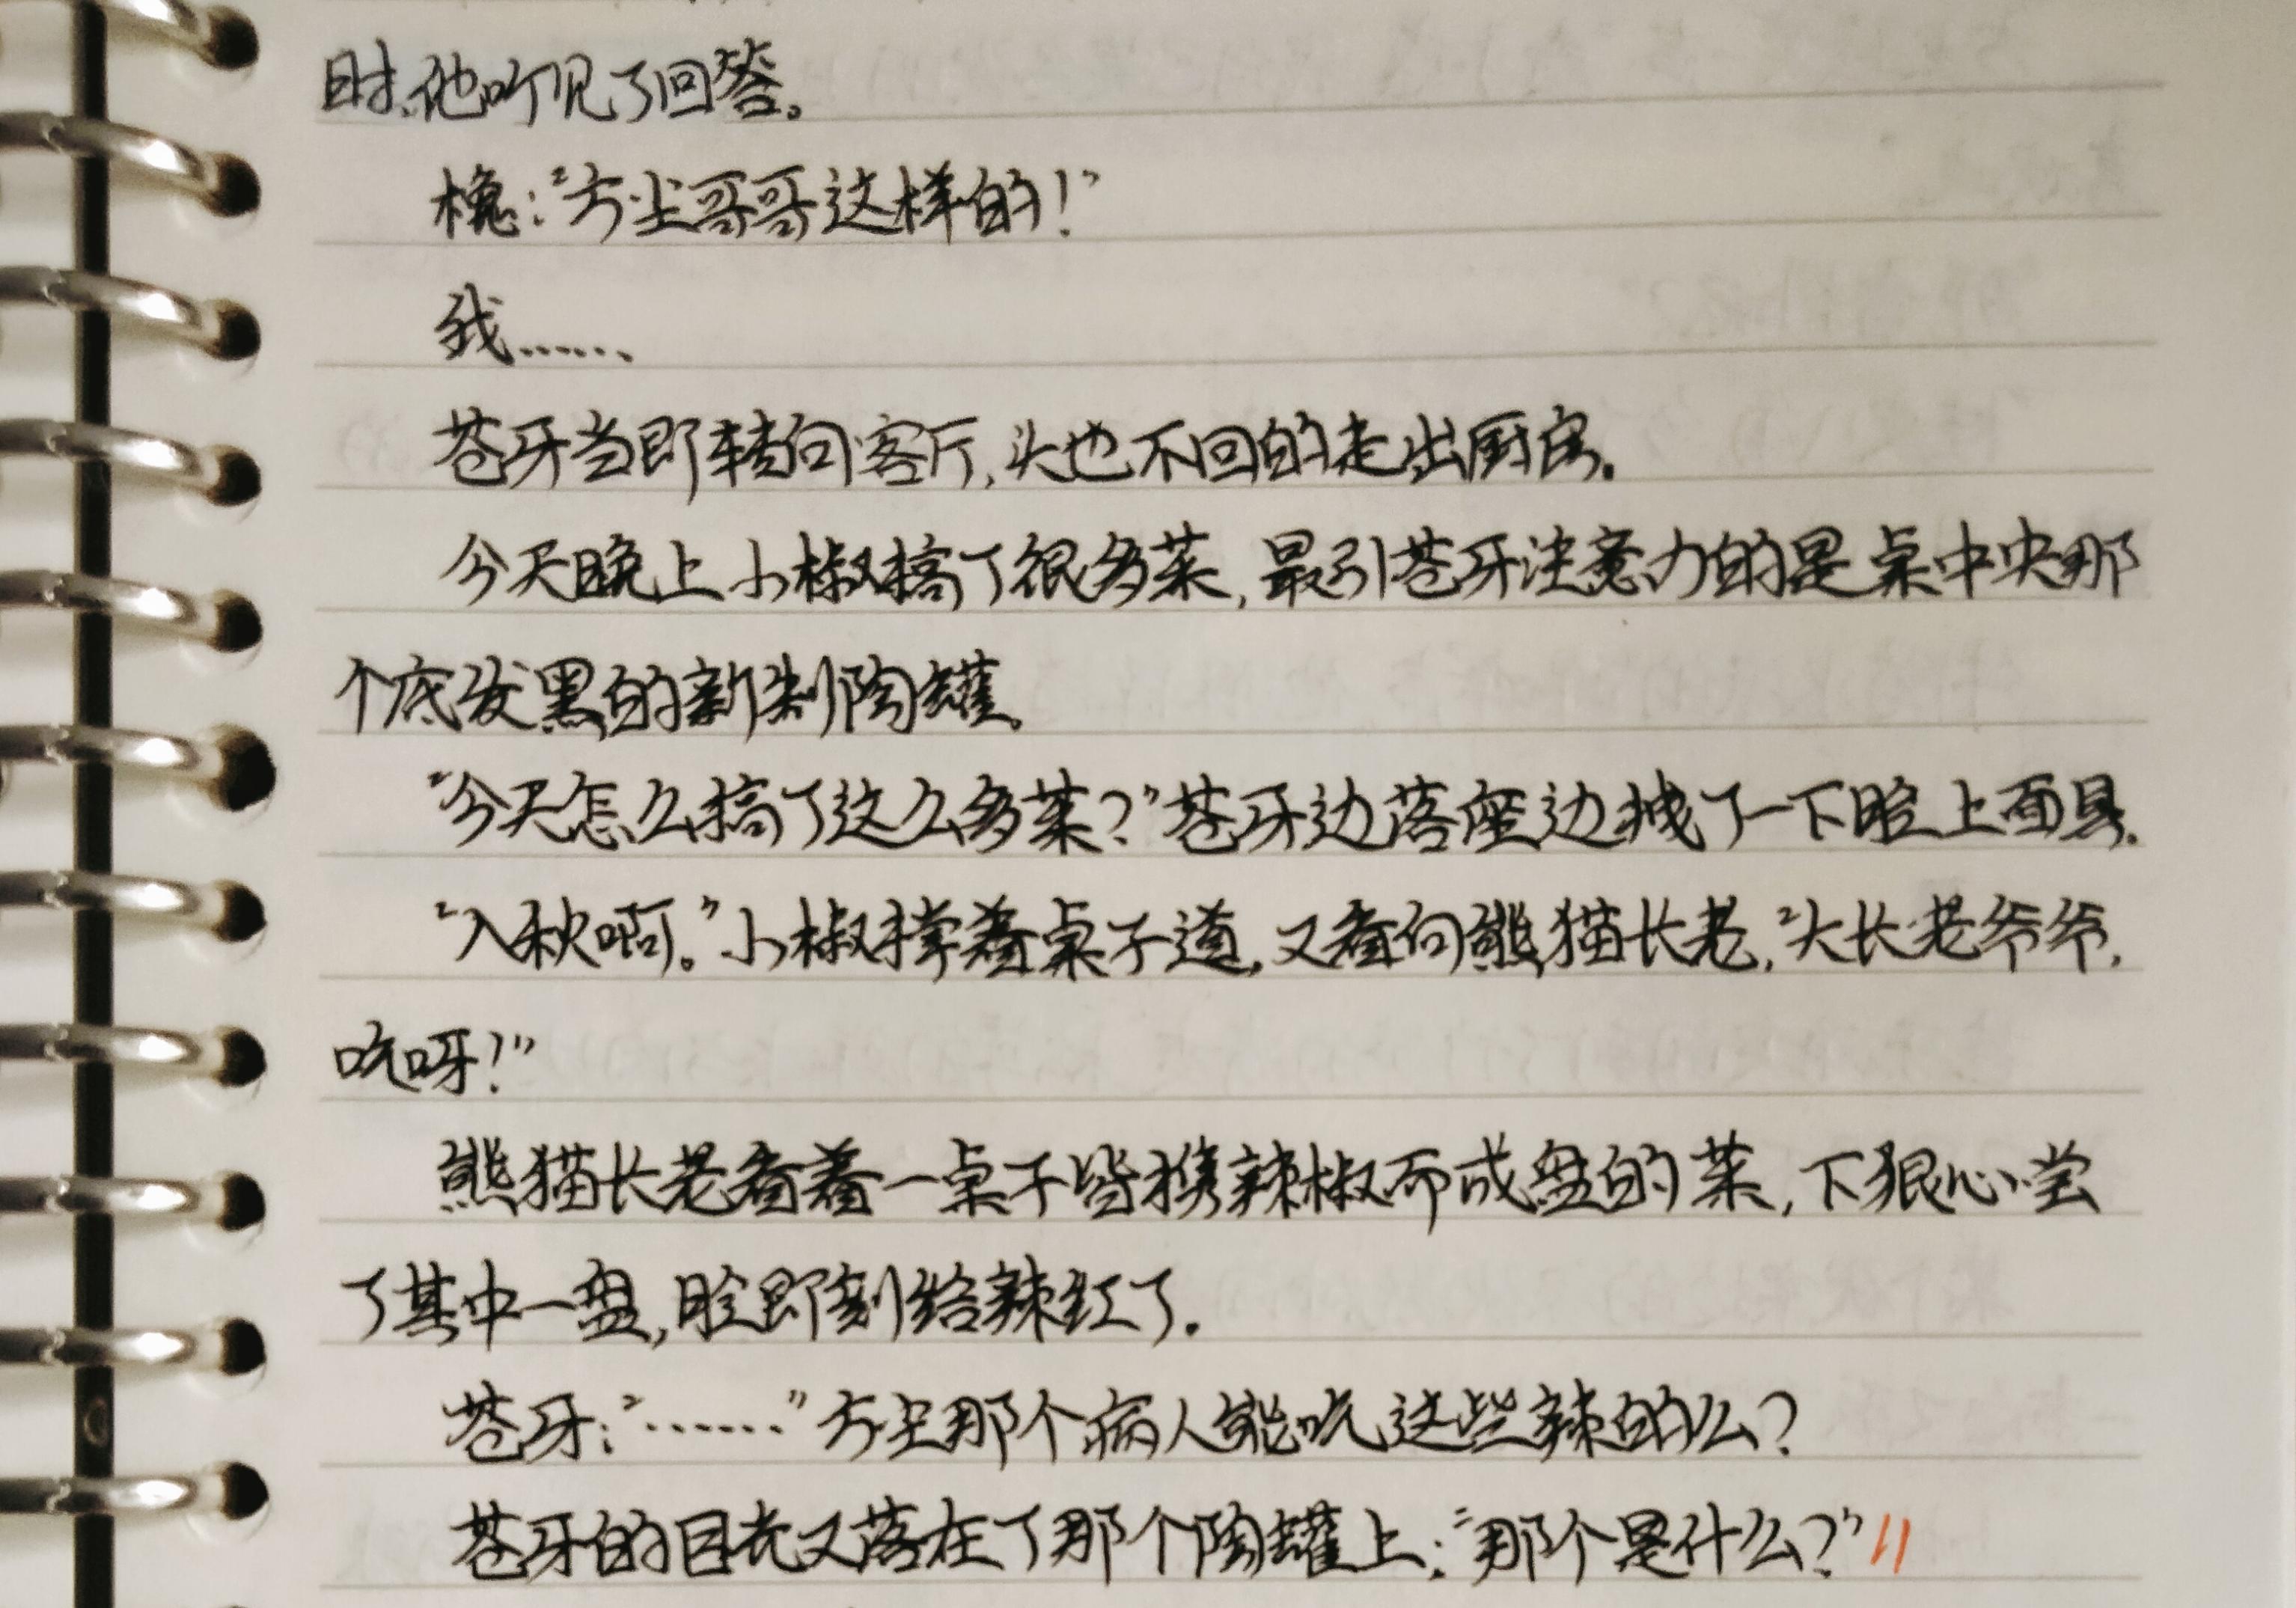 时,他听见了回答。
槐:“方尘哥哥这样的!”
我……
苍牙当即转向客厅,头也不回的走出厨房。
今天晚上小椒搞了很多菜,最引苍牙注意力的是桌中央那
个底发黑的新制陶罐。
“今天怎么搞了这么多菜?”苍牙边落座边拽了一下脸上面具.
“入秋啊。”小椒撑着桌子道,又看向熊猫长老,“大长老爷爷,
吃呀!”
熊猫长老看着一桌子皆携辣椒而成盘的菜,下狠心尝
了其中一盘,脸即刻给辣红了.
苍牙:“……”方尘那个病人能吃这些辣的么?
苍牙的目光又落在了那个陶罐上:“那个是什么?”